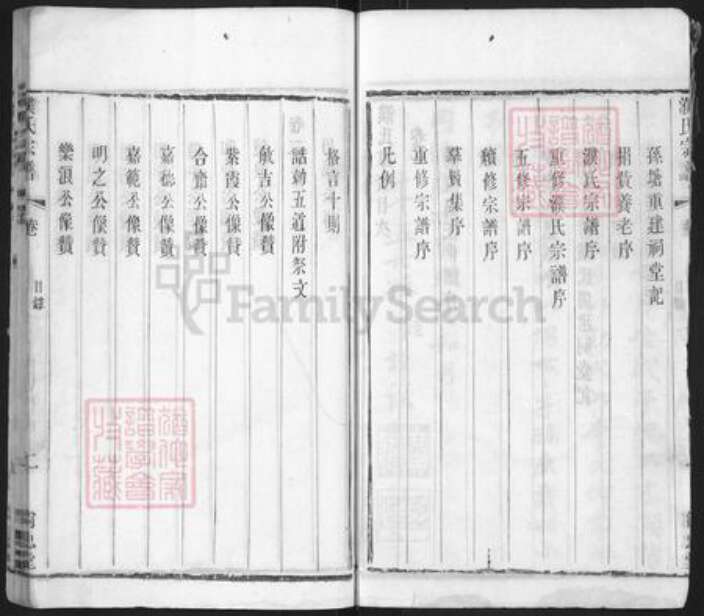 孫塘重建祠堂記
捐貲養老序
濮氏宗譜序
重修濮氏宗譜序
五修宗譜序
續修宗譜序
羣賢集序
重修宗譜序
凡例
格言十則
誥勅五道附祭文
敏吉公像贊
紫霞公像贊
合齋公像贊
嘉德公像贊
嘉範公像贊
明之公像贊
樂浪公像贊
氏宗譜
卷
目錄
FamilySearch